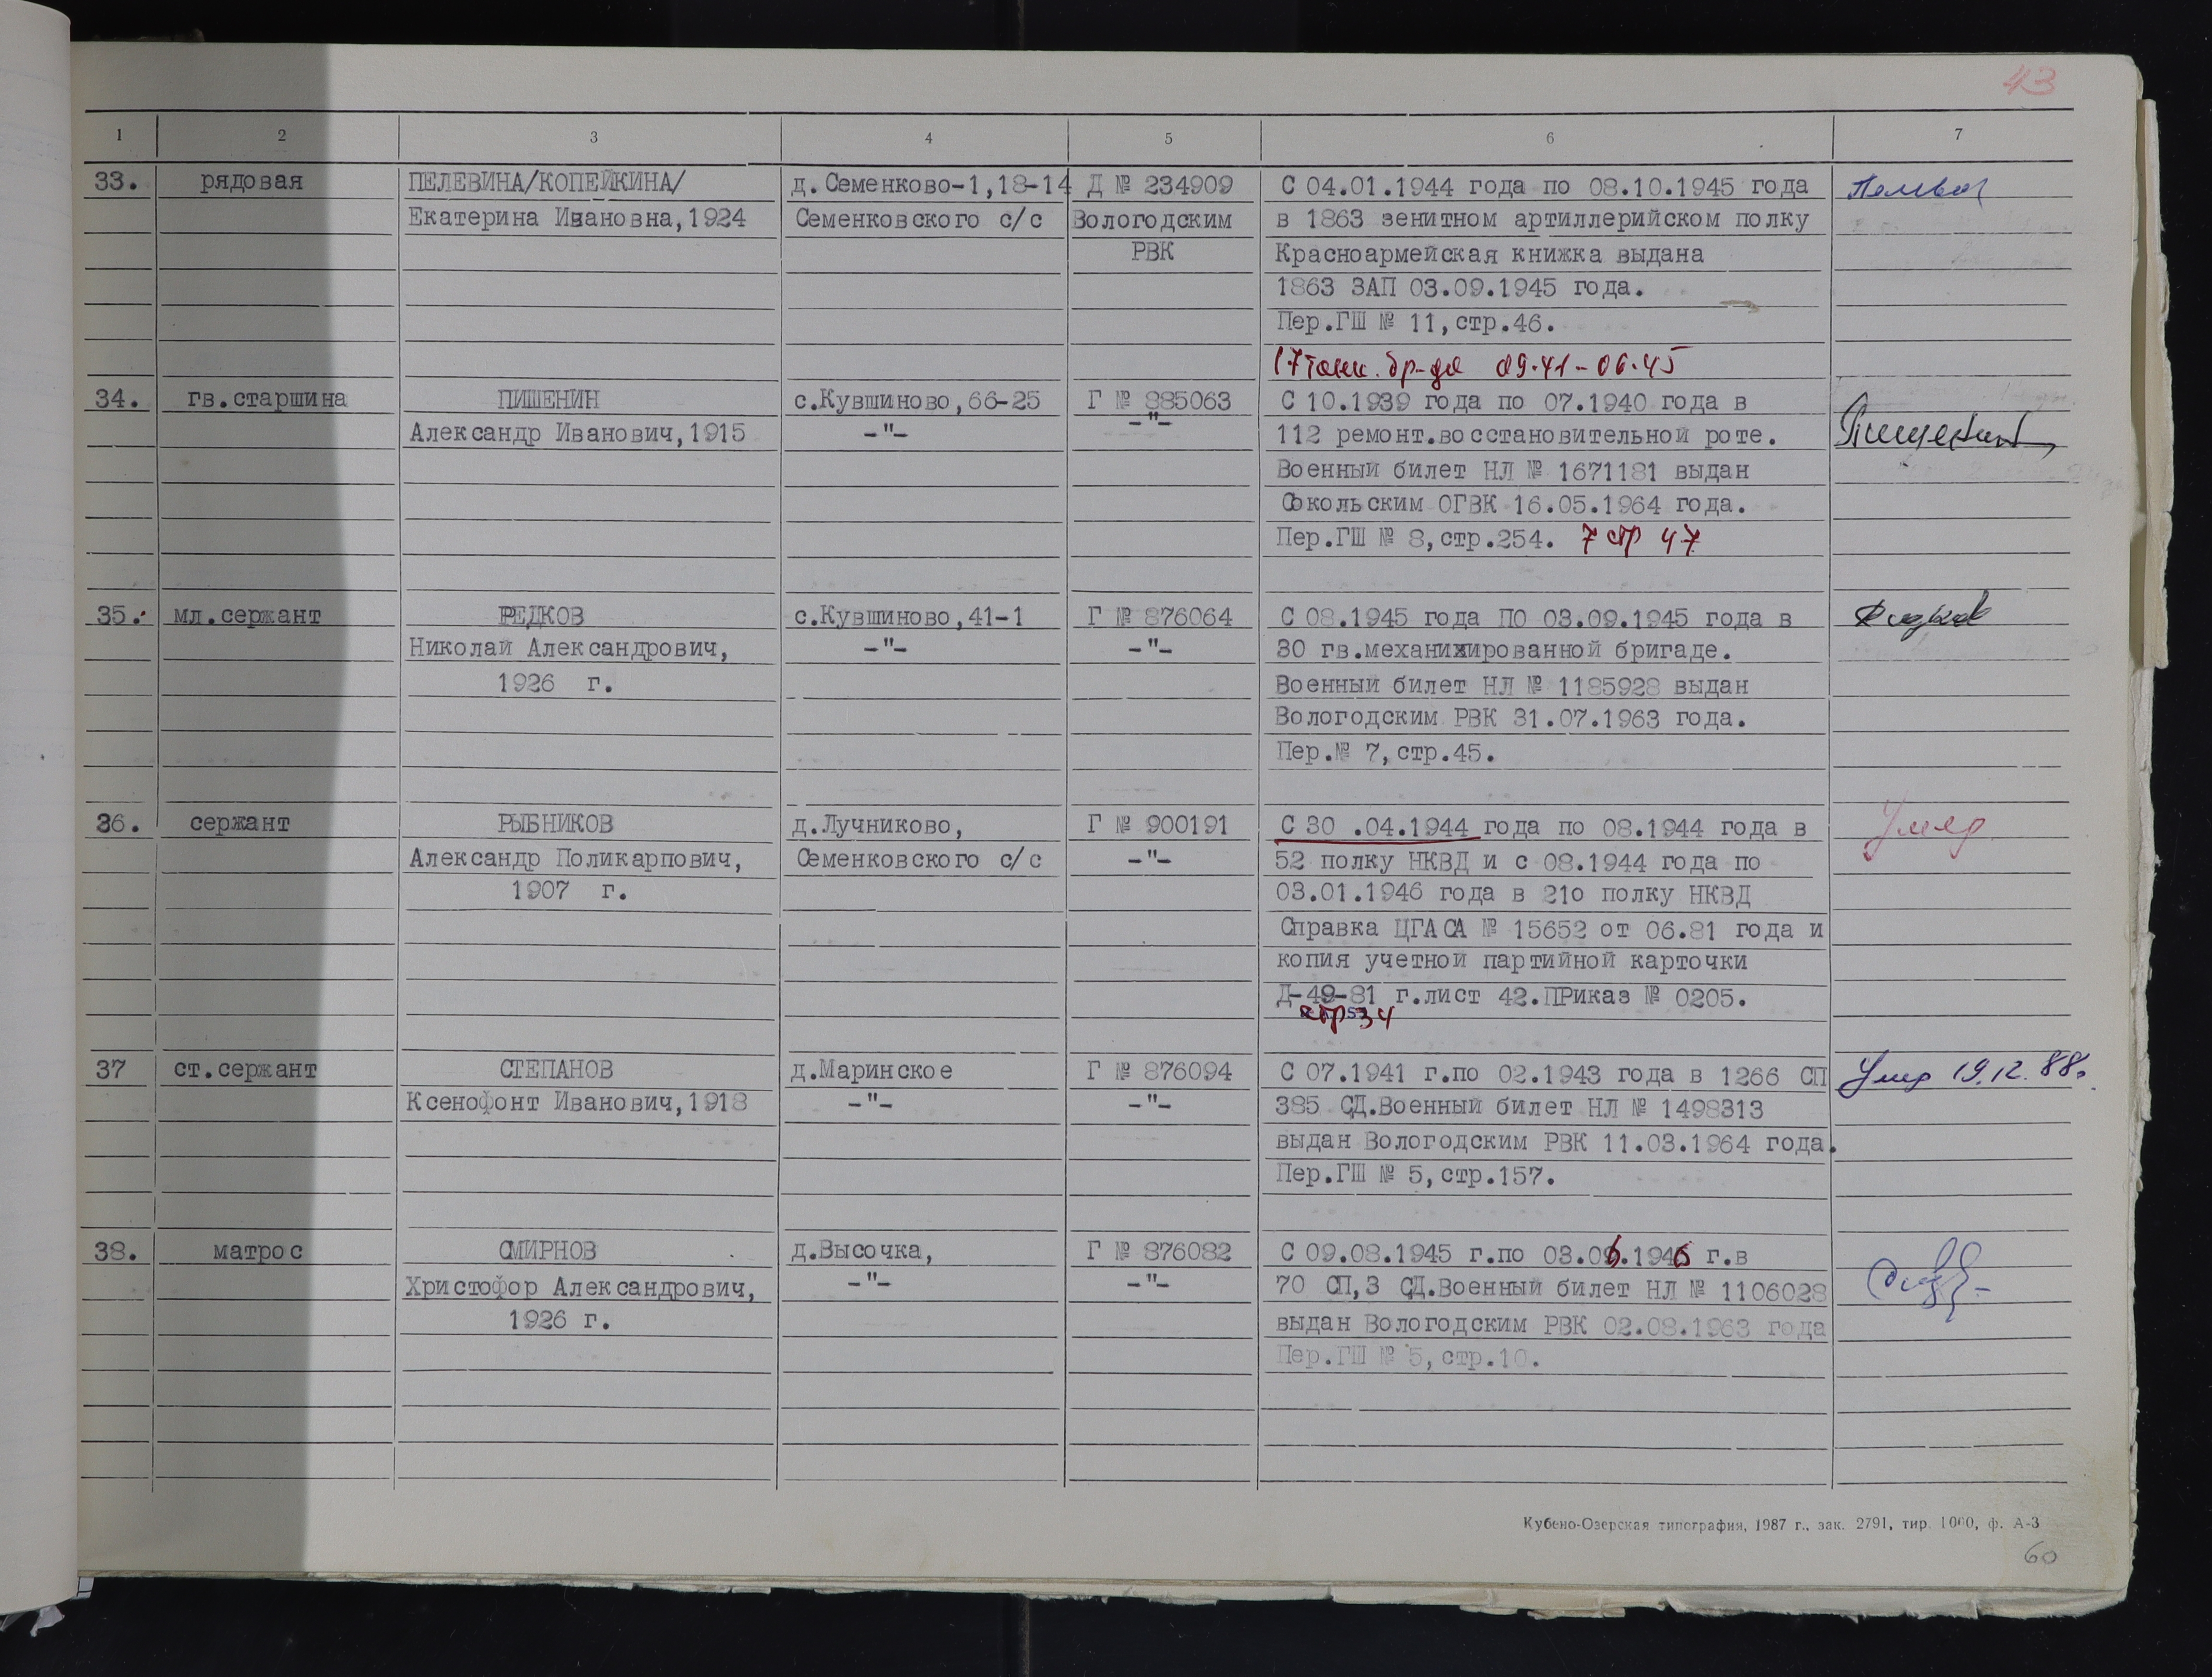 43
1 2 3 4 5 6 7
33. рядовая ПЕЛЕВИНА/КОПЕЙКИНА/ д.Семенково-1,18-14 Д № 234909 С 04.01.1944 года по 08.10.1945 года
Екатерина Ивановна,1924 Семенковского с/с Вологодским в 1863 зенитном артиллерийском полку
РВК Красноармейская книжка выдана
1863 ЗАП 03.09.1945 года.
Пер.ГШ № 11,стр.46.
17 танк. бр-да 09.41-06.45
34. гв.старшина ПИШЕНИН с.Кувшиново,66-25 Г № 885063 С 10.1939 года по 07.1940 года в
Александр Иванович,1915 -"- -"- 112 ремонт.восстановительной роте.
Военный билет НЛ № 1671181 выдан
Сокольским ОГВК 16.05.1964 года.
Пер.ГШ № 8,стр.254. 7 стр 47
35. мл.сержант РЕДКОВ с.Кувшиново,41-1 Г № 876064 С 08.1945 года ПО 03.09.1945 года в
Николай Александрович, -"- -"- 30 гв.механизированной бригаде.
1926 г. Военный билет НЛ № 1185928 выдан
Вологодским РВК 31.07.1963 года.
Пер.№ 7,стр.45.
36. сержант РЫБНИКОВ д.Лучниково, Г № 900191 С 30 .04.1944 года по 08.1944 года в Умер
Александр Поликарпович, Семенковского с/с -"- 52 полку НКВД и с 08.1944 года по
1907 г. 03.01.1946 года в 210 полку НКВД
Справка ЦГАСА № 15652 от 06.81 года и
копия учетной партийной карточки
Д-49-81 г.лист 42.ПРиказ № 0205.
стр 34
37 ст.сержант СТЕПАНОВ д.Маринское Г № 876094 С 07.1941 г.по 02.1943 года в 1266 СП Умер 19.12.88г.
Ксенофонт Иванович,1918 -"- -"- 385 СД.Военный билет НЛ № 1498313
выдан Вологодским РВК 11.03.1964 года.
Пер.ГШ № 5,стр.157.
38. матрос СМИРНОВ д.Высочка, Г № 876082 С 09.08.1945 г.по 03.06.1946 г.в
Христофор Александрович, -"- -"- 70 СП,3 СД.Военный билет НЛ № 1106028
1926 г. выдан Вологодским РВК 02.08.1963 года
Пер.ГШ № 5,стр.10.
Кубено-Озерская типография, 1987 г., зак. 2791, тир. 1000, ф. А-3
60